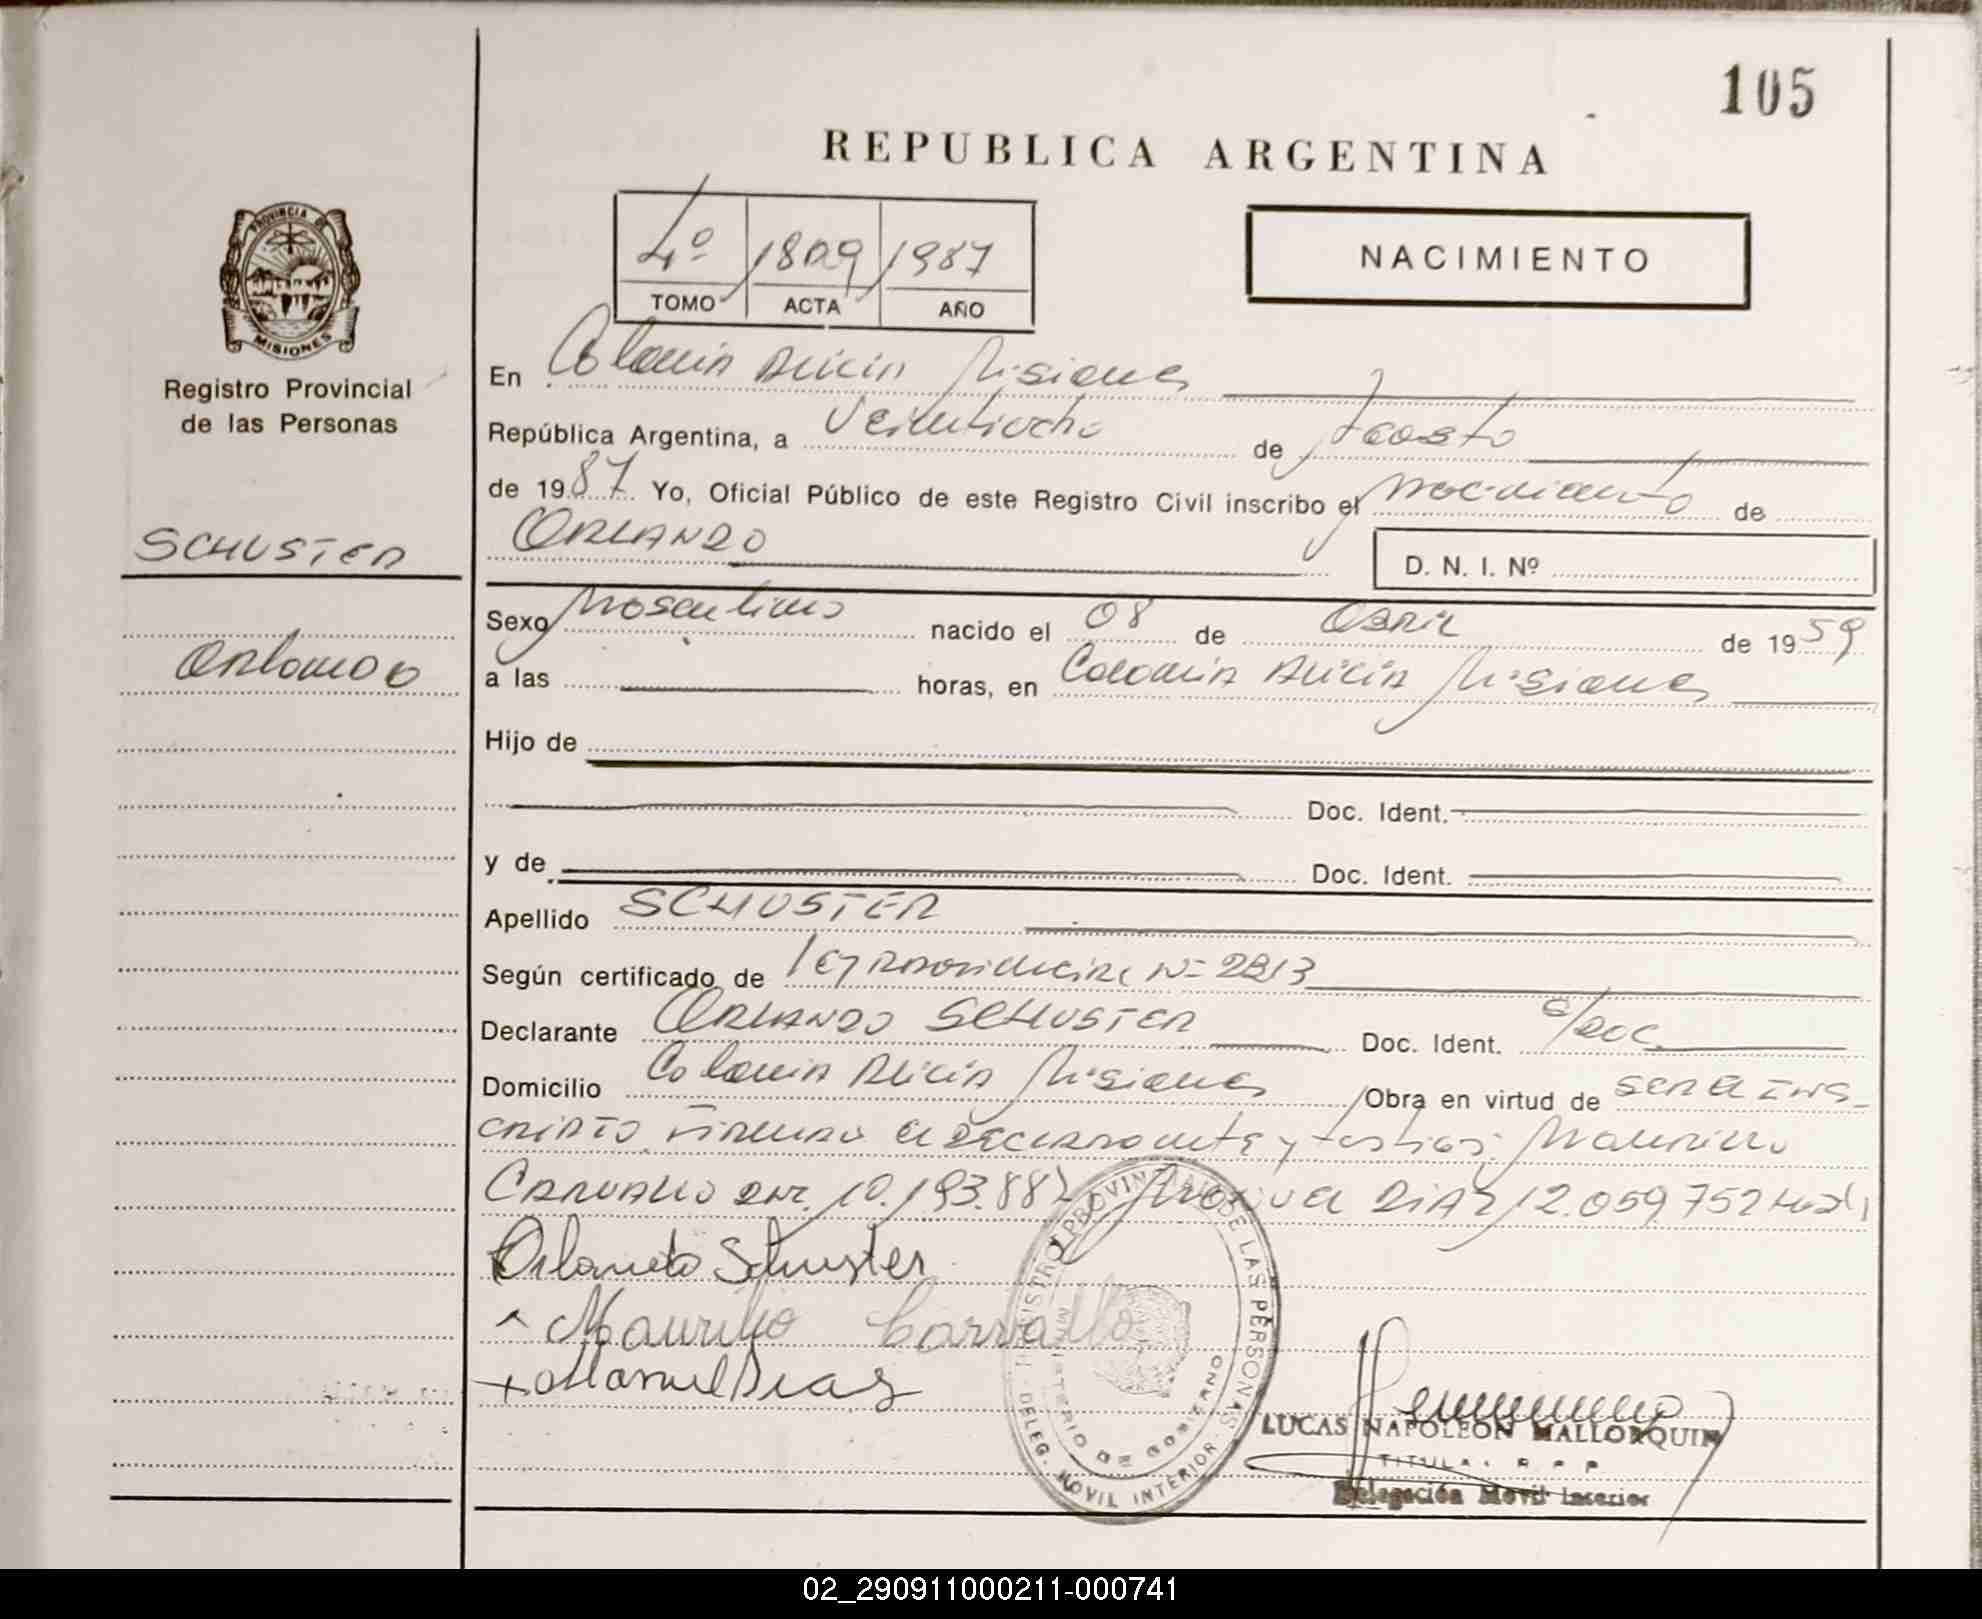 105
REPUBLICA ARGENTINA
4º 1809 1987
TOMO ACTA AÑO
NACIMIENTO
PROVINCIA DE
MISIONES
Registro Provincial
de las Personas
SCHUSTER
Orlando
En Colonia Alicia Misiones
República Argentina, a Veintiocho de Agosto
de 1987 Yo, Oficial Público de este Registro Civil inscribo el nacimiento de
ORLANDO
D. N. I. Nº
Sexo Masculino nacido el 08 de Abril de 1959
a las horas, en Colonia Alicia Misiones
Hijo de
Doc. Ident.
y de Doc. Ident.
Apellido SCHUSTER
Según certificado de Ley Provincial Nº 2813
Declarante ORLANDO SCHUSTER Doc. Ident. s/doc.
Domicilio Colonia Alicia Misiones Obra en virtud de ser el ins-
cripto firman el declarante y testigos: Maurilio
Carvallo DNI. 10.193.882 Manuel Diaz 12.059.752
Orlando Schuster
Maurilio Carvallo
x Manuel Diaz
REGISTRO PROVINCIAL DE LAS PERSONAS
MINISTERIO DE GOBIERNO
DELEG. MOVIL INTERIOR
LUCAS NAPOLEON MALLORQUIN
TITULAR R P P
Delegación Movil Interior
02_290911000211-000741